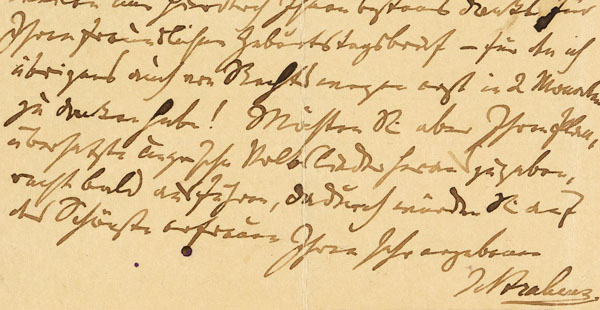 Ihnen bestens dankt für
Ihren freundlichen Geburtstagsbrief – für den ich
übrigens auch von Rechts wegen erst in 2 Monaten
zu danken habe! Möchten Sie aber Ihren Plan,
übersetzte Volkslieder herauszugeben,
recht bald ausführen, dadurch würden Sie auf
das Schönste erfreuen Ihren sehr ergebenen
J. Brahms.